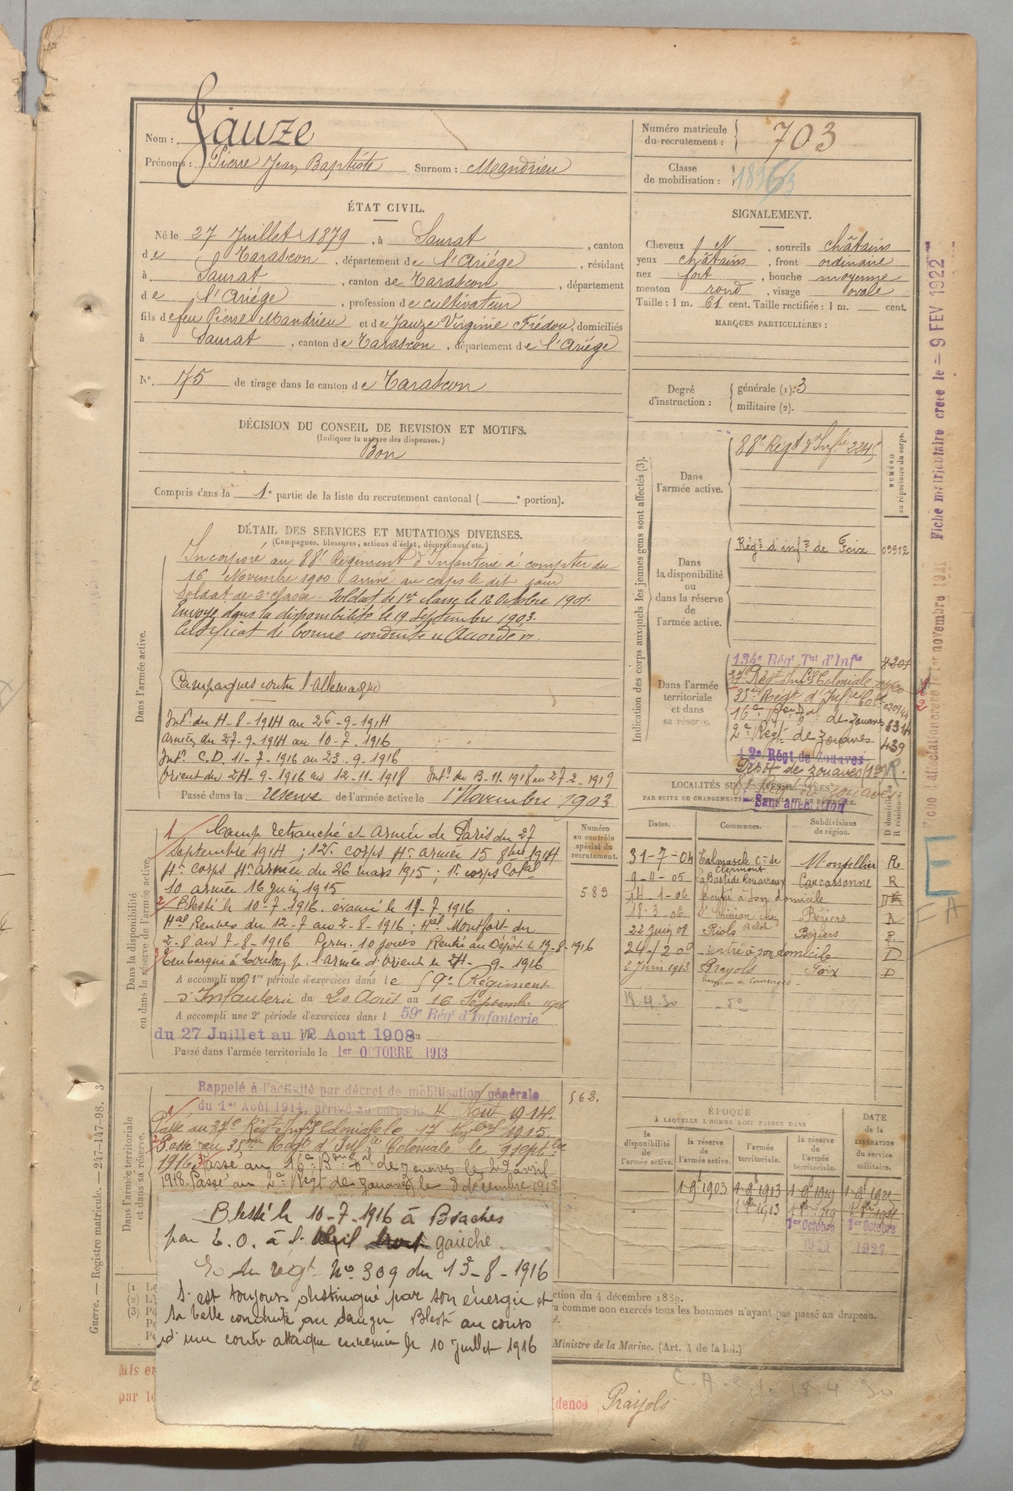 Nom : Jauze
Prénoms : Pierre Jean Baptiste Surnom : Mandrieu
Numéro matricule du recrutement : 703
Classe de mobilisation :
ÉTAT CIVIL.
Né le 27 Juillet 1879, à Saurat, canton
de Tarascon, département de l'Ariège, résidant
à Saurat, canton de Tarascon, département
de l'Ariège, profession de cultivateur
fils de feu Pierre Mandrieu et de Jauze Virginie Frédou, domiciliés
à Saurat, canton de Tarascon, département de l'Ariège
N° 175 de tirage dans le canton de Tarascon
SIGNALEMENT.
Cheveux N, sourcils châtains
yeux châtains, front ordinaire
nez fort, bouche moyenne
menton rond, visage ovale
Taille : 1 m. 61 cent. Taille rectifiée : 1 m. cent.
MARQUES PARTICULIÈRES :
Degré d'instruction : générale (1): 3
militaire (2).
DÉCISION DU CONSEIL DE REVISION ET MOTIFS.
(Indiquer la nature des dispenses.)
Bon
Compris dans la 1e partie de la liste du recrutement cantonal ( e portion).
DÉTAIL DES SERVICES ET MUTATIONS DIVERSES.
(Campagnes, blessures, actions d'éclat, décorations, etc.)
Dans l'armée active.
Incorporé au 88e Régiment d'Infanterie à compter du
16 Novembre 1900 arrivé au corps le dit jour
soldat de 2e classe. Soldat de 1re classe le 12 Octobre 1901.
Envoyé dans la disponibilité le 19 Septembre 1903.
Certificat de bonne conduite accordé.
Campagnes contre l'Allemagne
Intr du 4-8-1914 au 26-9-1914
Armées du 27-9-1914 au 10-7-1916
Intr C.D. 11-7-1916 au 23-9-1916
Orient du 24-9-1916 au 12-11-1918 Intr du 13-11-1918 au 27-2-1919
Passé dans la réserve de l'armée active le 1er Novembre 1903
Indication des corps auxquels les jeunes gens sont affectés (3).
NUMÉRO au répertoire du corps.
Dans l'armée active.
88e Régt d'Infie
Dans la disponibilité ou dans la réserve de l'armée active.
Régt d'infie de Foix
Dans l'armée territoriale et dans sa réserve.
134e Régt Tal d'Infie
37e Régt Infie Coloniale
35e Régt d'Infie Cole
2e Régt de zouaves 439
2e Régt de Zouaves
Dépôt de zouaves
Sans affectation
Fiche matriculaire créée le - 9 FEV 1922
Dans la disponibilité ou dans la réserve de l'armée active.
1/ Camp retranché et Armée de Paris du 27
septembre 1914 ; corps 4e armée 15 8bre 1914
4e corps 4e armée du 26 mars 1915 ; 1er corps Colal
10 armée 16 juin 1915
2/ Blessé le 10-7-1916. évacué le 11-7-1916
Hal Rennes du 12-7 au 2-8-1916 ; Hal Montfort du
2-8 au 7-8-1916 Perm. 10 jours Rentré au Dépôt le 19-8-1916
Embarqué à Toulon p. l'armée d'Orient le 24-9-1916
A accompli une 1re période d'exercices dans le 59e Régiment
d'Infanterie du 20 Août au 16 Septembre
A accompli une 2e période d'exercices dans l 59e Régt d'Infanterie
du 27 Juillet au 12 Aout 1908
Passé dans l'armée territoriale le 1er OCTOBRE 1913
Numéro au contrôle spécial du recrutement.
589
563.
LOCALITÉS SUCCESSIVES HABITÉES
PAR SUITE DE CHANGEMENTS DE DOMICILE OU DE RÉSIDENCE.
Dates. Communes. Subdivisions de région. D domicile. R résidence.
31-7-04 Clermont Montpellier R
9-4-05 Labastide Rouairoux Carcassonne R
14-1-06 Rentré à son domicile D
18-3-06 St Chinian Béziers R
22 Juin 08 Riols Béziers R
rentré à son domicile D
2 Juin 1913 Prayols Foix D
18.4.30 do
Dans l'armée territoriale et dans sa réserve.
Rappelé à l'activité par décret de mobilisation générale
du 1er Août 1914, arrivé au corps le 4 Aout 1914.
Passé au 37e Régt Infie Coloniale le 17 1915.
Passé au 35me Régt d'Infie Coloniale le 9 septbre
1916. Passé au de zouaves le 29 avril
1918. Passé au 2e Régt de zouaves le 8 décembre 1918
Blessé le 10-7-1916 à Biaches
par E.O. à l'œil gauche
du régt No 309 du 13-8-1916
S'est toujours distingué par son énergie et
sa belle conduite au danger Blessé au cours
d'une contre attaque ennemie le 10 juillet 1916
ÉPOQUE
À LAQUELLE L'HOMME DOIT PASSER DANS
la disponibilité de l'armée active. la réserve de l'armée active. l'armée territoriale. la réserve de l'armée territoriale.
DATE de la LIBÉRATION du service militaire.
1-9bre 1903
1er Octobre 1er Octobre
1927
ction du 4 décembre 1889.
ra comme non exercés tous les hommes n'ayant pas passé au drapeau.
Ministre de la Marine. (Art. 4 de la loi.)
Guerre. — Registre matricule. — 247-147-98. 3
Mis en
par le
idence Prayols
18.4.30